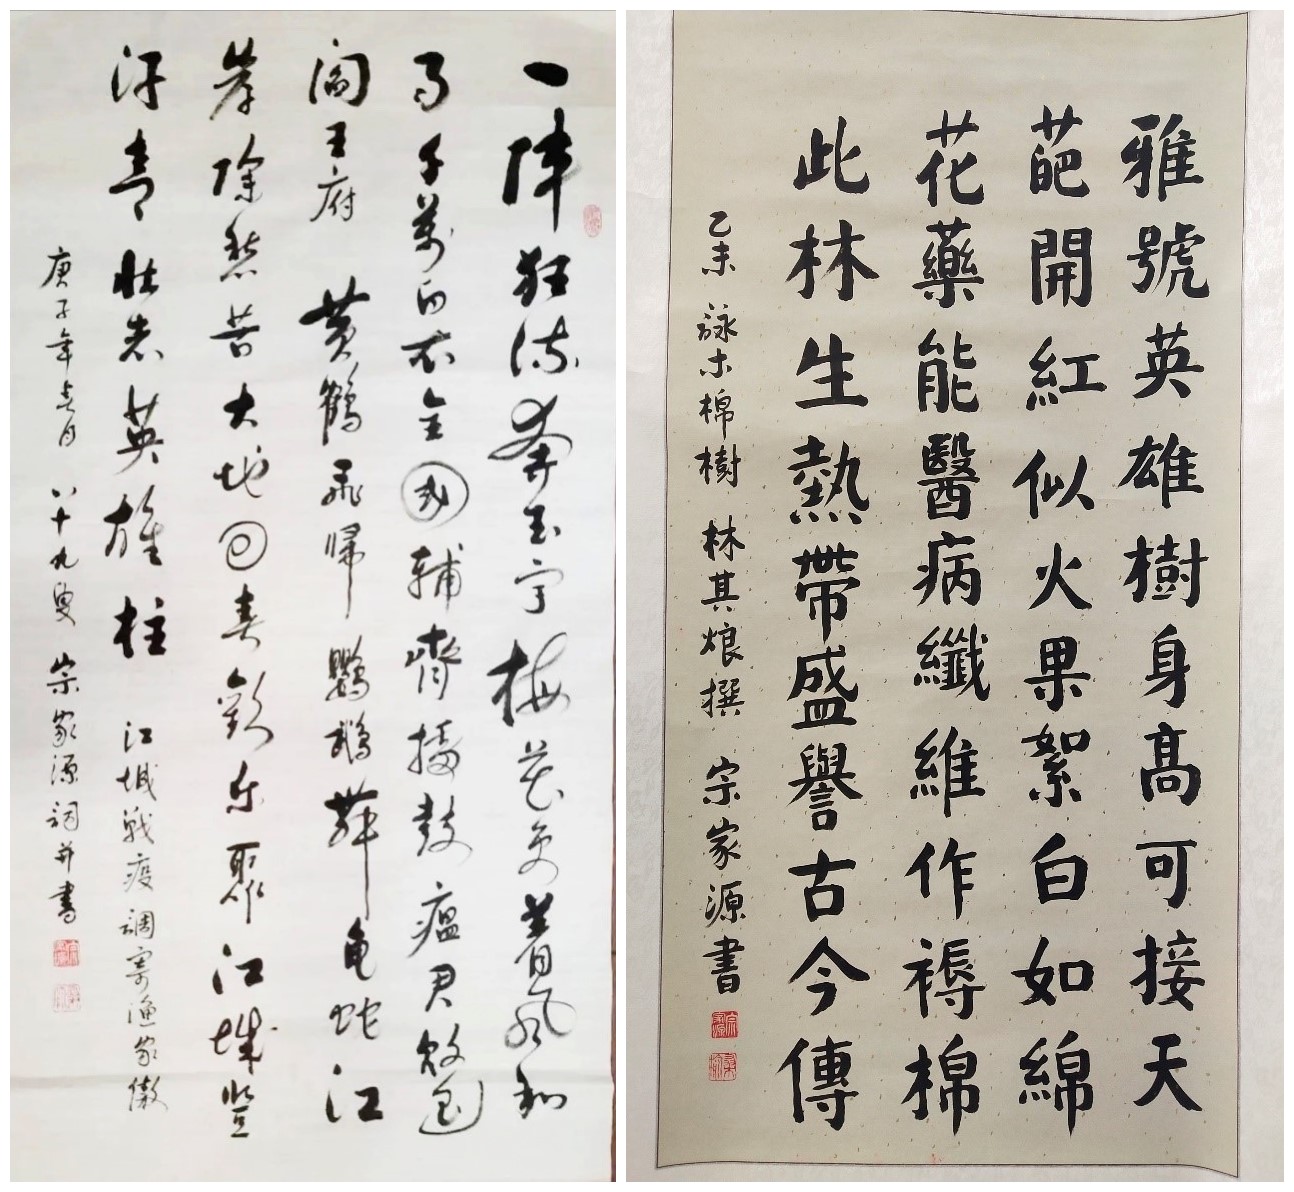 一陣狂流牽玉宇梅花更着風和
雨千萬白衣全國輔齊擂鼓瘟君敗退
閻王府 黃鶴飛歸鸚鵡舞龜蛇江
岸除愁苦大地回春歡樂聚江城豎
汗青壯志英雄柱 江城戰疫調寄漁家傲
庚子年春月 八十九叟 宗家源詞并書
雅號英雄樹身高可接天
葩開紅似火果絮白如綿
花藥能醫病纖維作褥棉
此林生熱帶盛譽古今傳
乙未 詠木棉樹 林其烺撰 宗家源書